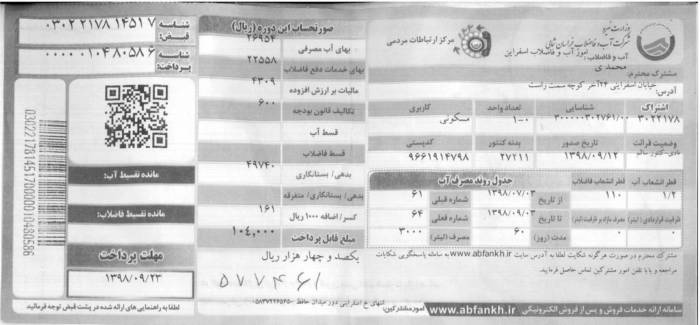 شناسه قبض: ۰۳۰۲۲۱۷۸۱۴۵۱۷
شناسه پرداخت: ۰۰۰۰۰۱۰۴۸۰۵۸۶
03022178145170000010480586
مانده تقسیط آب:
مانده تقسیط فاضلاب:
مهلت پرداخت
۱۳۹۸/۰۹/۲۳
لطفا به راهنمایی های ارائه شده در پشت قبض توجه فرمائید
صورتحساب این دوره (ریال)
۲۶۹۵۴
بهای آب مصرفی
۲۲۵۵۸
بهای خدمات دفع فاضلاب
۴۳۰۹
مالیات بر ارزش افزوده
۶۰۰
تکالیف قانون بودجه
قسط آب
قسط فاضلاب
۴۹۷۴۰
بدهی / بستانکاری
بدهی / بستانکاری / متفرقه
۱۶۱
کسر/ اضافه ۱۰۰۰ ریال
۱۰۴,۰۰۰
مبلغ قابل پرداخت
یکصد و چهار هزار ریال
۵۷۷۴۶۱
انتهای خ اسفراینی دور میدان حافظ
وزارت نیرو
شرکت آب و فاضلاب خراسان شمالی
آب و فاضلاب: امور آب و فاضلاب اسفراین
مرکز ارتباطات مردمی
مشترک محترم: محمدی
آدرس: خیابان اسفراینی ۲۴آخر کوچه سمت راست
اشتراک
۳۰۲۲۱۷۸
شناسایی
۳۰۰۰۰۰۳۰۲۷۶۱/۰۰
تعداد واحد
۱-۰
کاربری
مسکونی
وضعیت قرائت
عادی-کنتور سالم
تاریخ صدور
۱۳۹۸/۰۹/۱۲
بدنه کنتور
۲۷۲۱۱
کدپستی
۹۶۶۱۹۱۴۷۹۸
قطر انشعاب آب
۱/۲
قطر انشعاب فاضلاب
۱۱۰
ظرفیت قراردادی ( لیتر)
۰
مصرف مازاد بر ظرفیت (لیتر)
۰
جدول روند مصرف آب
از تاریخ ۱۳۹۸/۰۷/۰۳ شماره قبلی ۶۱
تا تاریخ ۱۳۹۸/۰۹/۰۳ شماره فعلی ۶۴
مدت (روز) ۶۰ مصرف (لیتر) ۳۰۰۰
مشترک محترم در صورت هرگونه شکایت لطفا به آدرس سایت www.abfankh.ir به سامانه پاسخگویی شکایات
مراجعه و یا با تلفن امور مشترکین تماس حاصل فرمائید.
سامانه ارائه خدمات فروش و پس از فروش الکترونیکی www.abfankh.ir امور مشترکین: